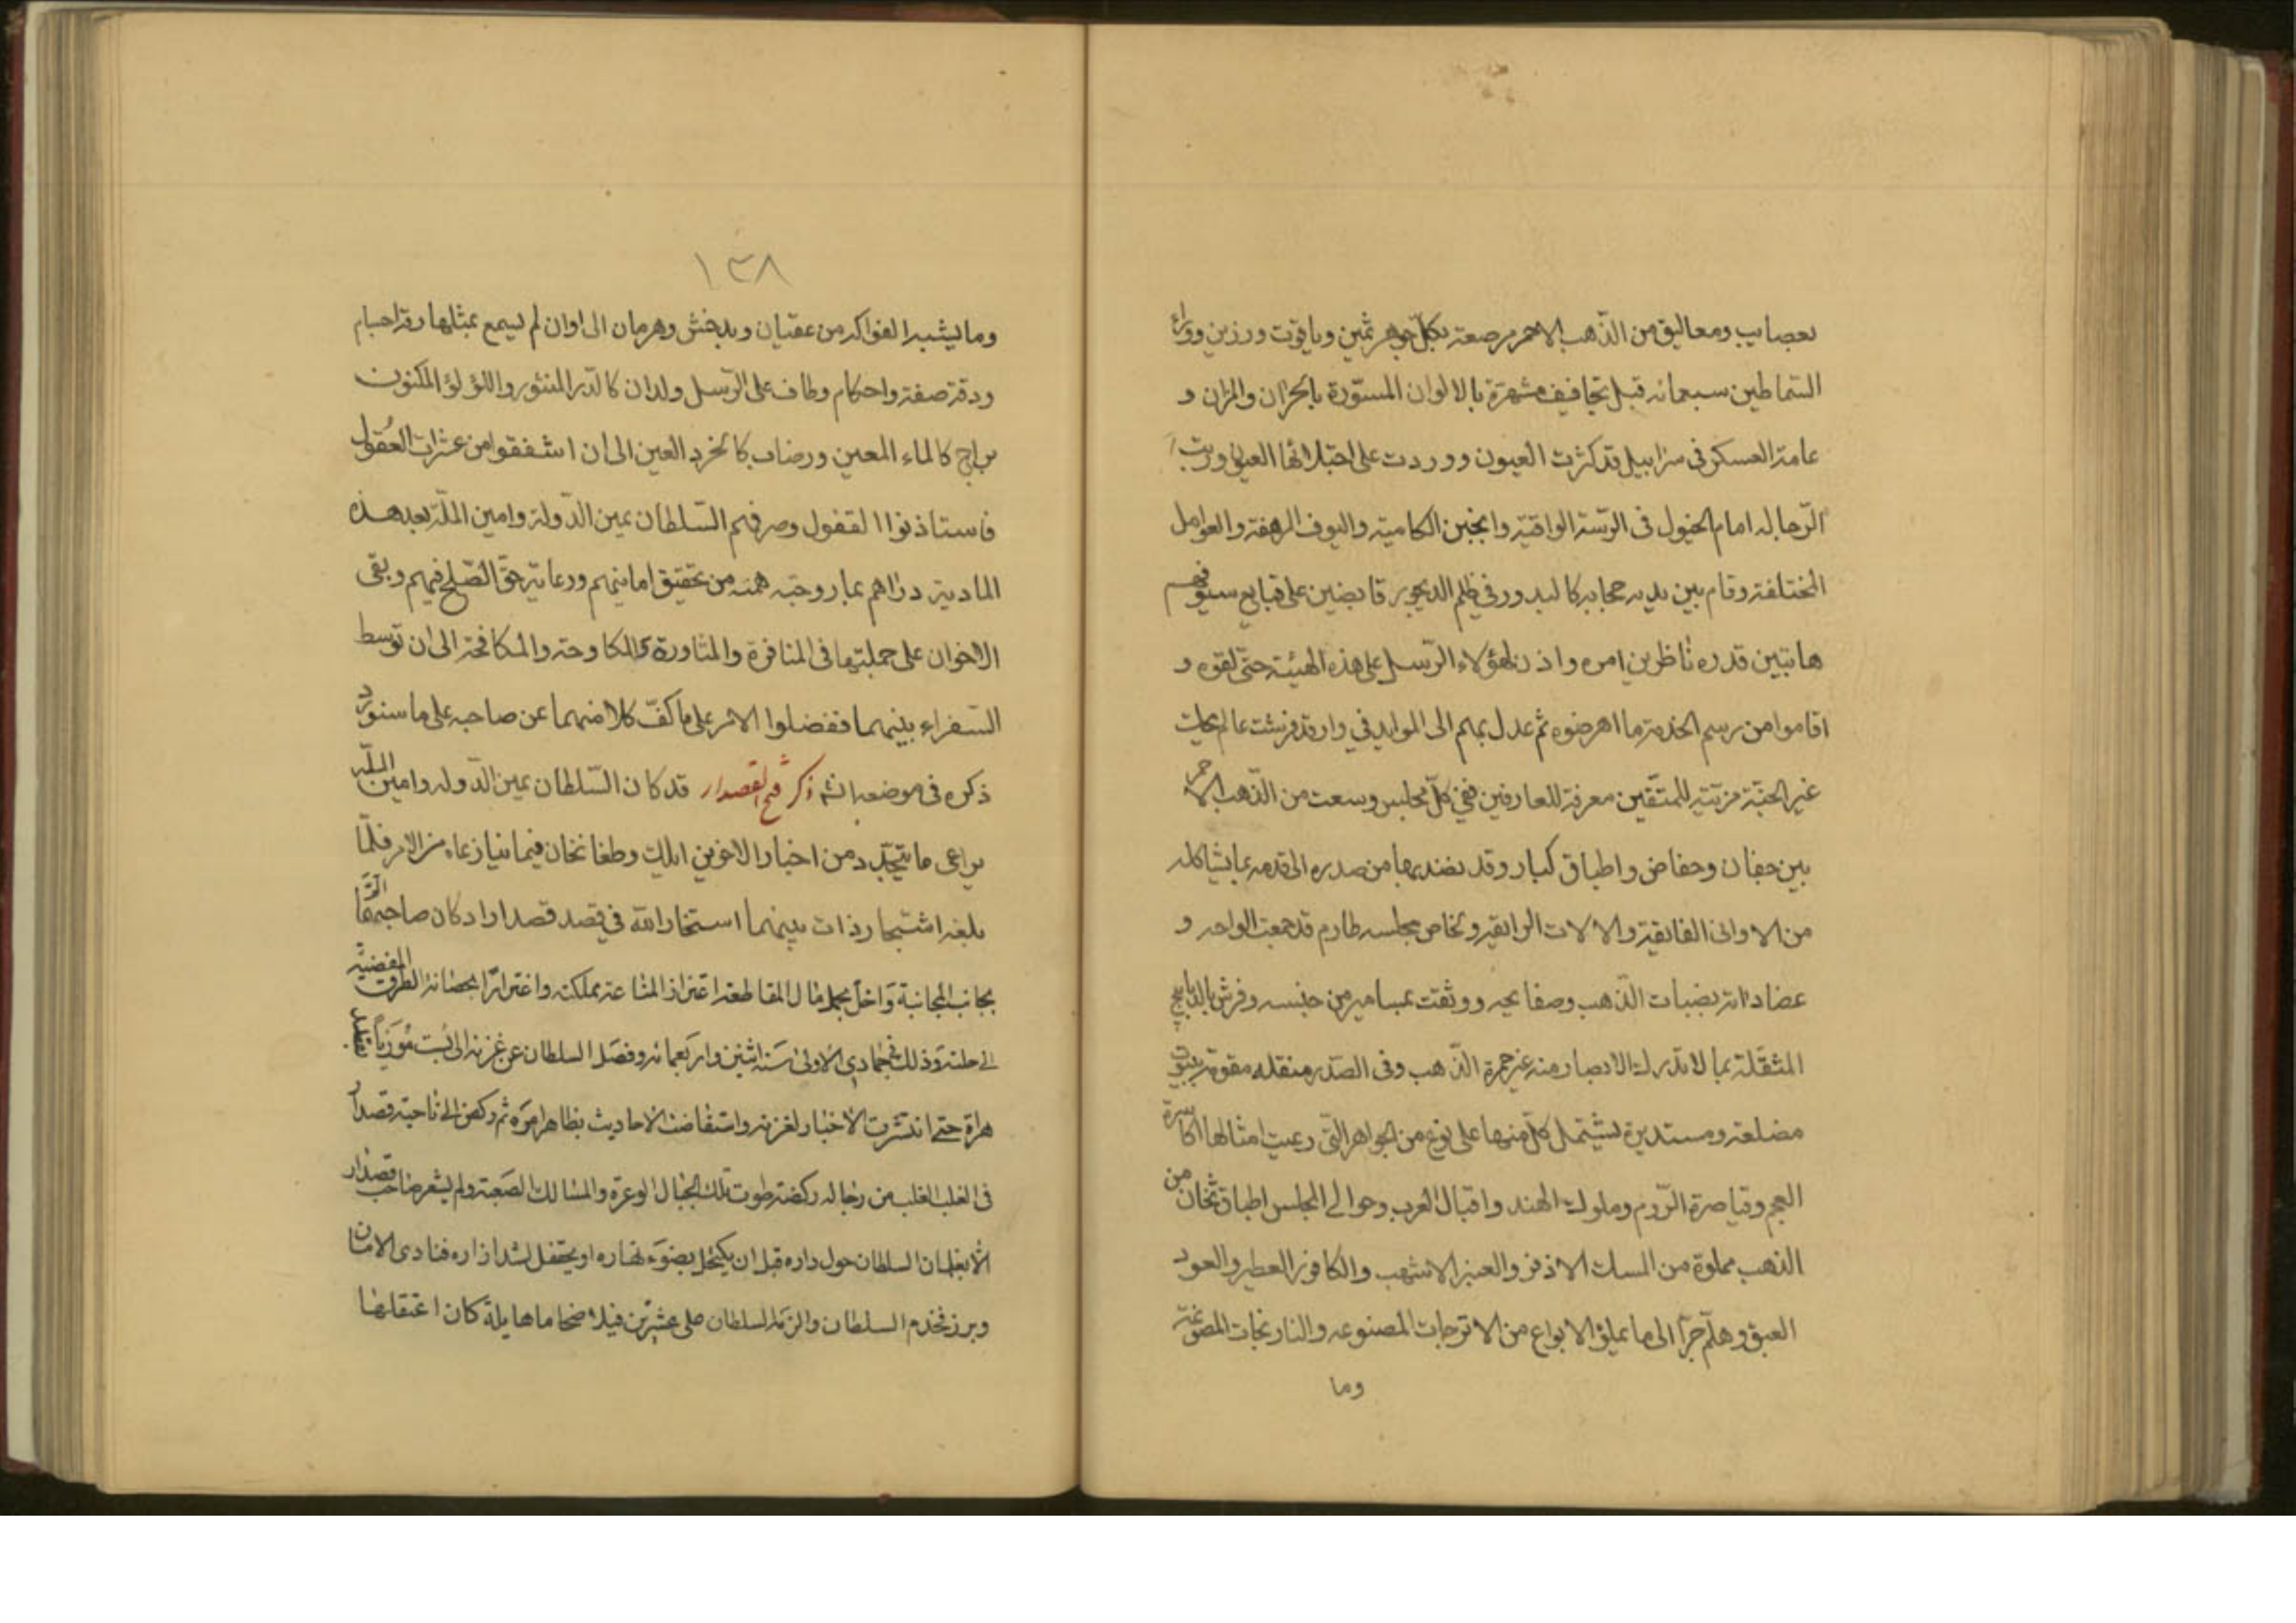 بعصايب ومعاليق من الذهب الاحمر مرصعة بكل جوهر ثمين وياقوت ورزين ووراء
السماطين سبعمائه فيل بتجافيف مشهرة بالالوان المستورة بالحران والمزان و
عامة العسكر فى سرابيل قد كثرت العيون ووردت على احتلائها العيون ورتب
الرجاله امام الخيول فى الرتبة الواقية والجنن الكامية والسيوف المرهفة والعوامل
المختلفة وقام بين يديه حجابه كالبدور فى ظلم الديجور قابضين على قبايع سيوفهم
هائبين قدره ناظرين امره واذن لهؤلاء الرسل على هذه الهيئة حتى لقوه و
اقاموا من رسم الخدمة ما اهرضوه ثم عدل بهم الى الموايد في دار قد فرشت عالم تحك
غير الجنة مزينة للمتقين معرفة للعارفين ففي كل مجلس وسعت من الذهب الاحمر
بين جفان وحفاض واطباق كبار وقد نضد بها من صدره الى قدمه بما يشاكله
من الاوانى الفايقة والالات الرايقة وبخاص مجلسه طارم قد جمعت الواحه و
عضاداته بضبات الذهب وصفايحه ووثقت بمسامير من جنسه وفرش بالديابيج
المثقلة بما لا تدرك الابصار منه غير حمرة الذهب وفى الصدر منقله مقومة ببيوت
مضلعة ومستديرة يشتمل كل منها على نوع من الجواهر التى رعيت امثالها اكاسرة
العجم وقياصرة الروم وملوك الهند واقبال العرب وحوالى المجلس اطباق ثخان من
الذهب مملوة من المسك الاذفر والعنبر الاشهب والكافور العطير والعود
العبق وهلم جرا الى ما يملؤ الابواع من الاترجات المصنوعه والنارنجات المصوغة
وما
١٣٨
وما يشبه الفواكه من عقيان وبدخش وهرمان الى اوان لم يسمع بمثلها رقة اجسام
ودقة صفة واحكام وطاف على الرسل ولدان كالدر المنثور واللؤلؤ المكنون
براح كالماء المعين ورضاب كالخرد العين الى ان اشفقوا من عثرات العقول
فاستاذنوا القفول وصرفهم السلطان يمين الدولة وامين الملة بعد هذه
المادية دراهم بما روجته همته من تحقيق امانيهم ورعاية حق الصلح فيهم وبقى
الاخوان على جملتهما فى المنافرة والمثاورة والمكاوحة والمكافحة الى ان توسط
السفراء بينهما ففضلوا الامر على ما كف كلا منهما عن صاحبه على ما سنورد
ذكره فى موضعه انشا ذكر فتح القصدار قد كان السلطان يمين الدوله وامين المله
يراعى ما يتجدد من اخبار الاخوين ايلك وطغانخان فيما يتنازعاه من الامر فلما
بلغه اشتجار ذات بينهما استخار الله في قصد قصدار اذ كان صاحبها قد
بجانب المجانبة واخل بحمل مال المقاطعة اغترارا لمناعة مملكته واغترارا بحصانة الطرق المفضية
الى حلته وذلك في جمادى الاولى سنة اثنين واربعمائه وفصل السلطان عن غزنه الى بست موريا بقصد
هراة حتى انتشرت الاخبار لغزنه واستفاضت الاحاديث بظاهر امره ثم ركض الى ناحية قصدار
فى الغلب الغلب من رجاله ركضة طوت تلك الجبال الوعرة والمسالك الصعبة ولم يشعر صاحب قصدار
الا بغلمان السلطان حول داره قبل ان يكتحل بضوء نهاره او يحتفل لشد ازاره فنادى الامان
وبرز فخدم السلطان والزمه السلطان على عشرين فيلا ضخاما هايلة كان اعتقلها